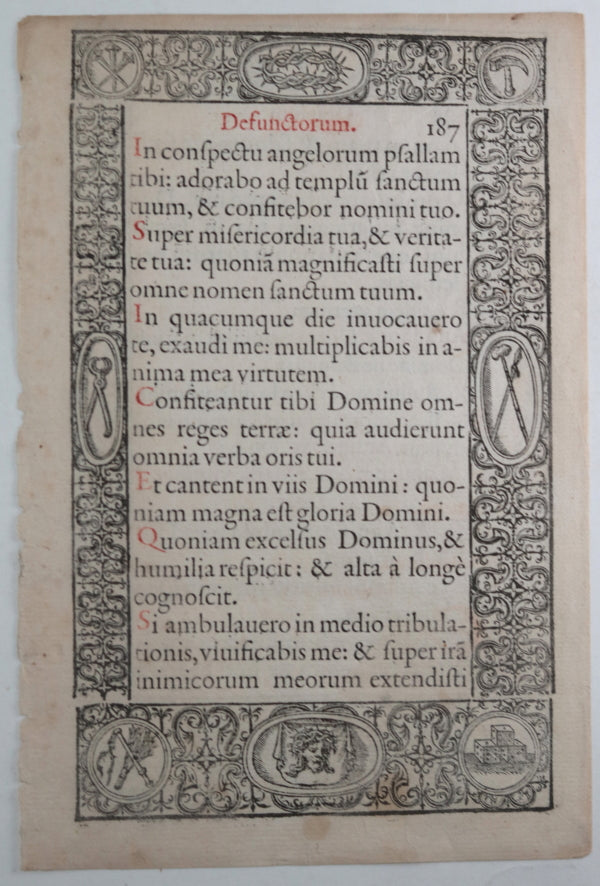 Defunctorum. 187
In conſpectu angelorum pſallam
tibi: adorabo ad templũ ſanctum
tuum, & confitebor nomini tuo.
Super miſericordia tua, & verita-
te tua: quoniã magnificaſti ſuper
omne nomen ſanctum tuum.
In quacumque die inuocauero
te, exaudi me: multiplicabis in a-
nima mea virtutem.
Confiteantur tibi Domine om-
nes reges terræ: quia audierunt
omnia verba oris tui.
Et cantent in viis Domini: quo-
niam magna eſt gloria Domini.
Quoniam excelſus Dominus, &
humilia reſpicit: & alta à longè
cognoſcit.
Si ambulauero in medio tribula-
tionis, viuificabis me: & ſuper irã
inimicorum meorum extendiſti